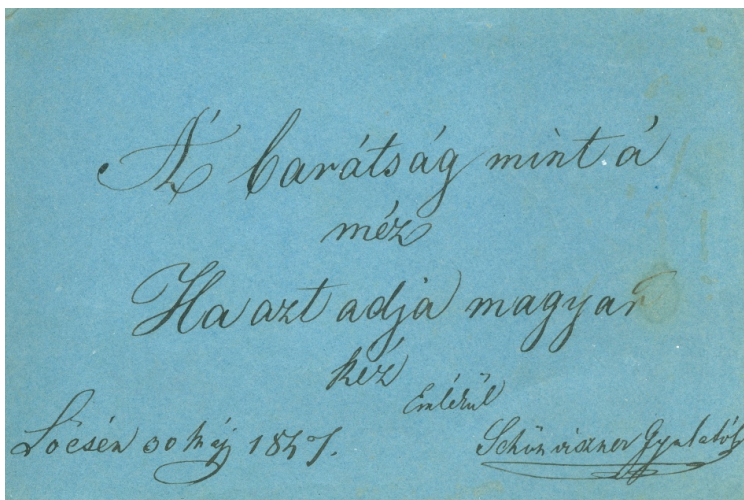 Á barátság mint á
méz
Ha azt adja magyar
kéz
Emlékül
Lőcsén 30 Máj 1847.
Schönviszner Gyulától